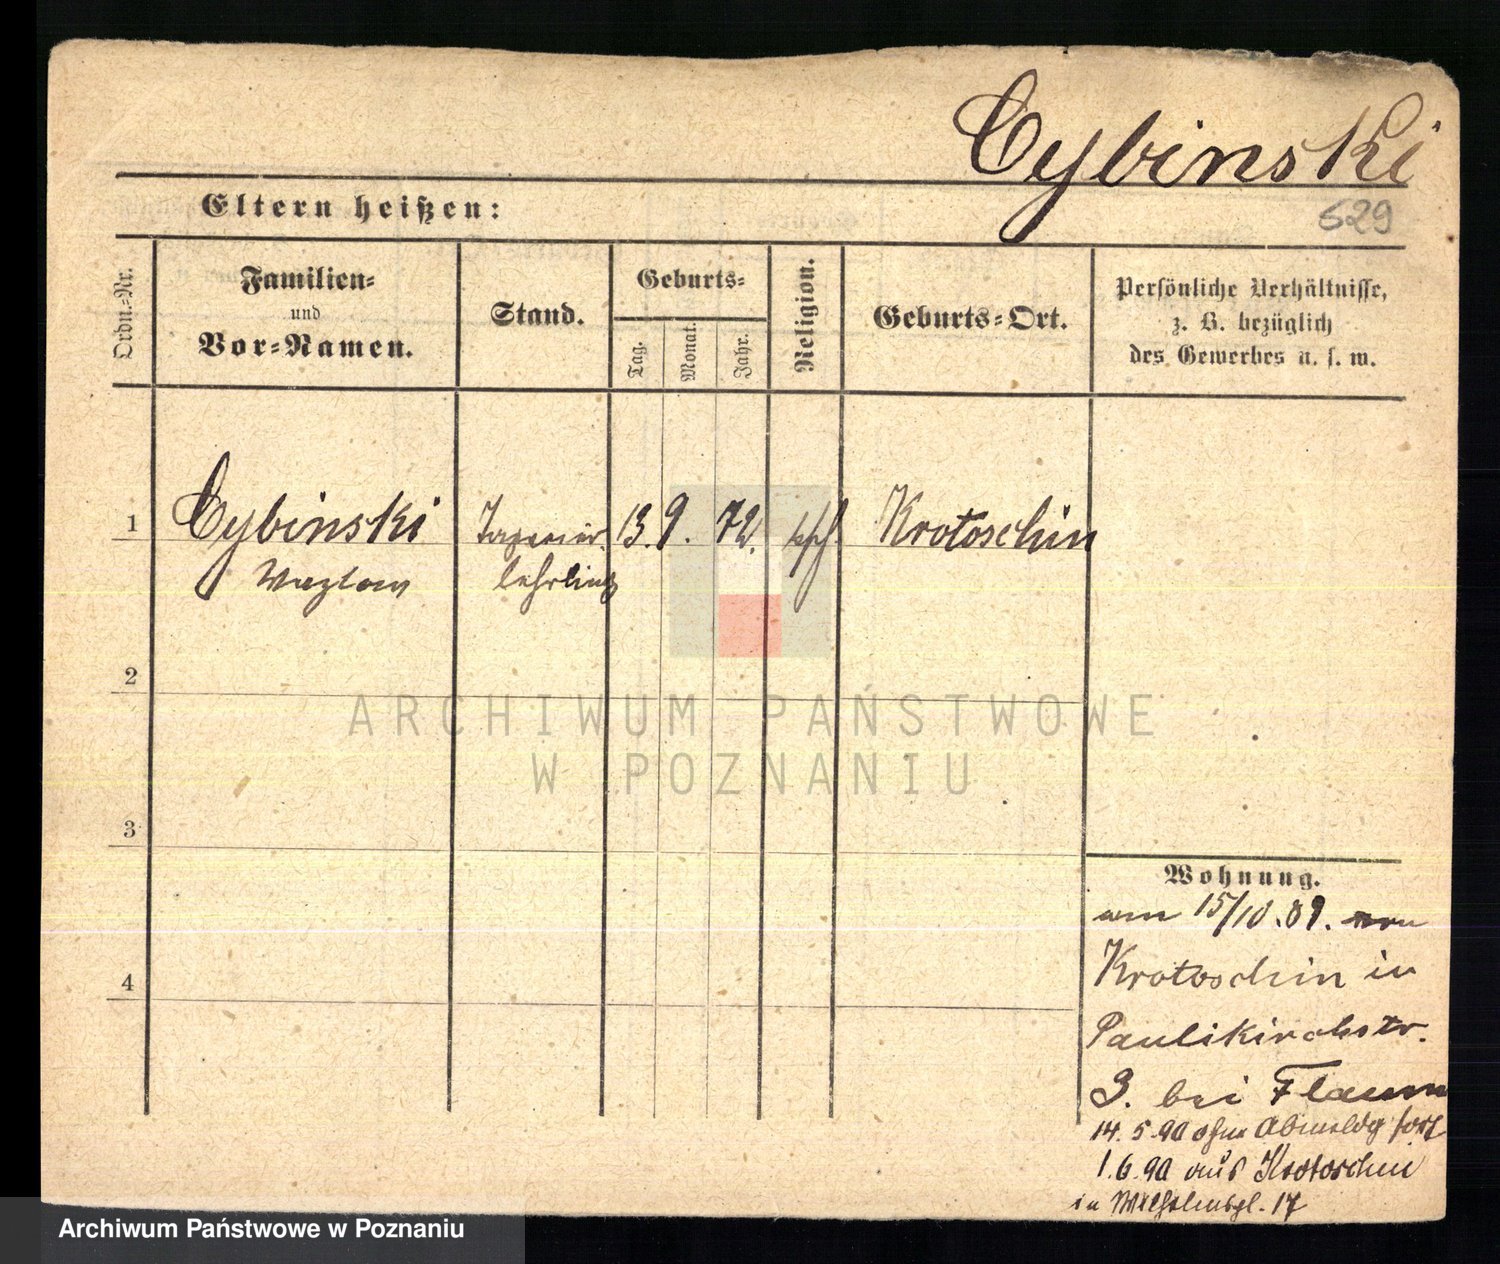 Cybinski
Eltern heißen:
529
Ordn.-Nr.
Familien-
und
Vor-Namen.
Stand.
Geburts-
Tag.
Monat.
Jahr.
Religion.
Geburts-Ort.
Persönliche Verhältnisse,
z. B. bezüglich
des Gewerbes u. s. w.
1
Cybinski
Wazlaw
Tapezier
lehrling
13. 9. 72.
kath
Krotoschin
2
3
4
ARCHIWUM PAŃSTWOWE
W POZNANIU
Wohnung.
am 15/10.89. von
Krotoschin in
Paulikirchstr.
3. bei Flaum
14. 5. 90 ohne Abmeldg fort
1. 6. 90 aus Krotoschin
in Wilhelmspl. 17
Archiwum Państwowe w Poznaniu